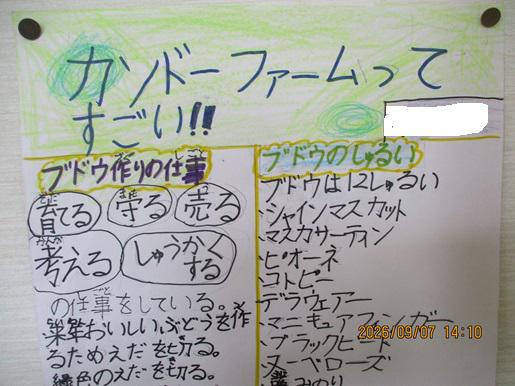 カンドーファームって
すごい!!
ブドウ作りの仕事
育てる 守る 売る
考える しゅうかくする
の仕事をしている。
おいしいぶどうを作
るためえだを切る。
緑色のえだを切る。
ブドウのしゅるい
ブドウは12しゅるい
・シャインマスカット
・マスカサーティン
・ピオーネ
・コトピー
・デラウェアー
・マニキュアフィンガー
・ブラックビート
・ヌーベローズ
みのり
2026/09/07 14:10